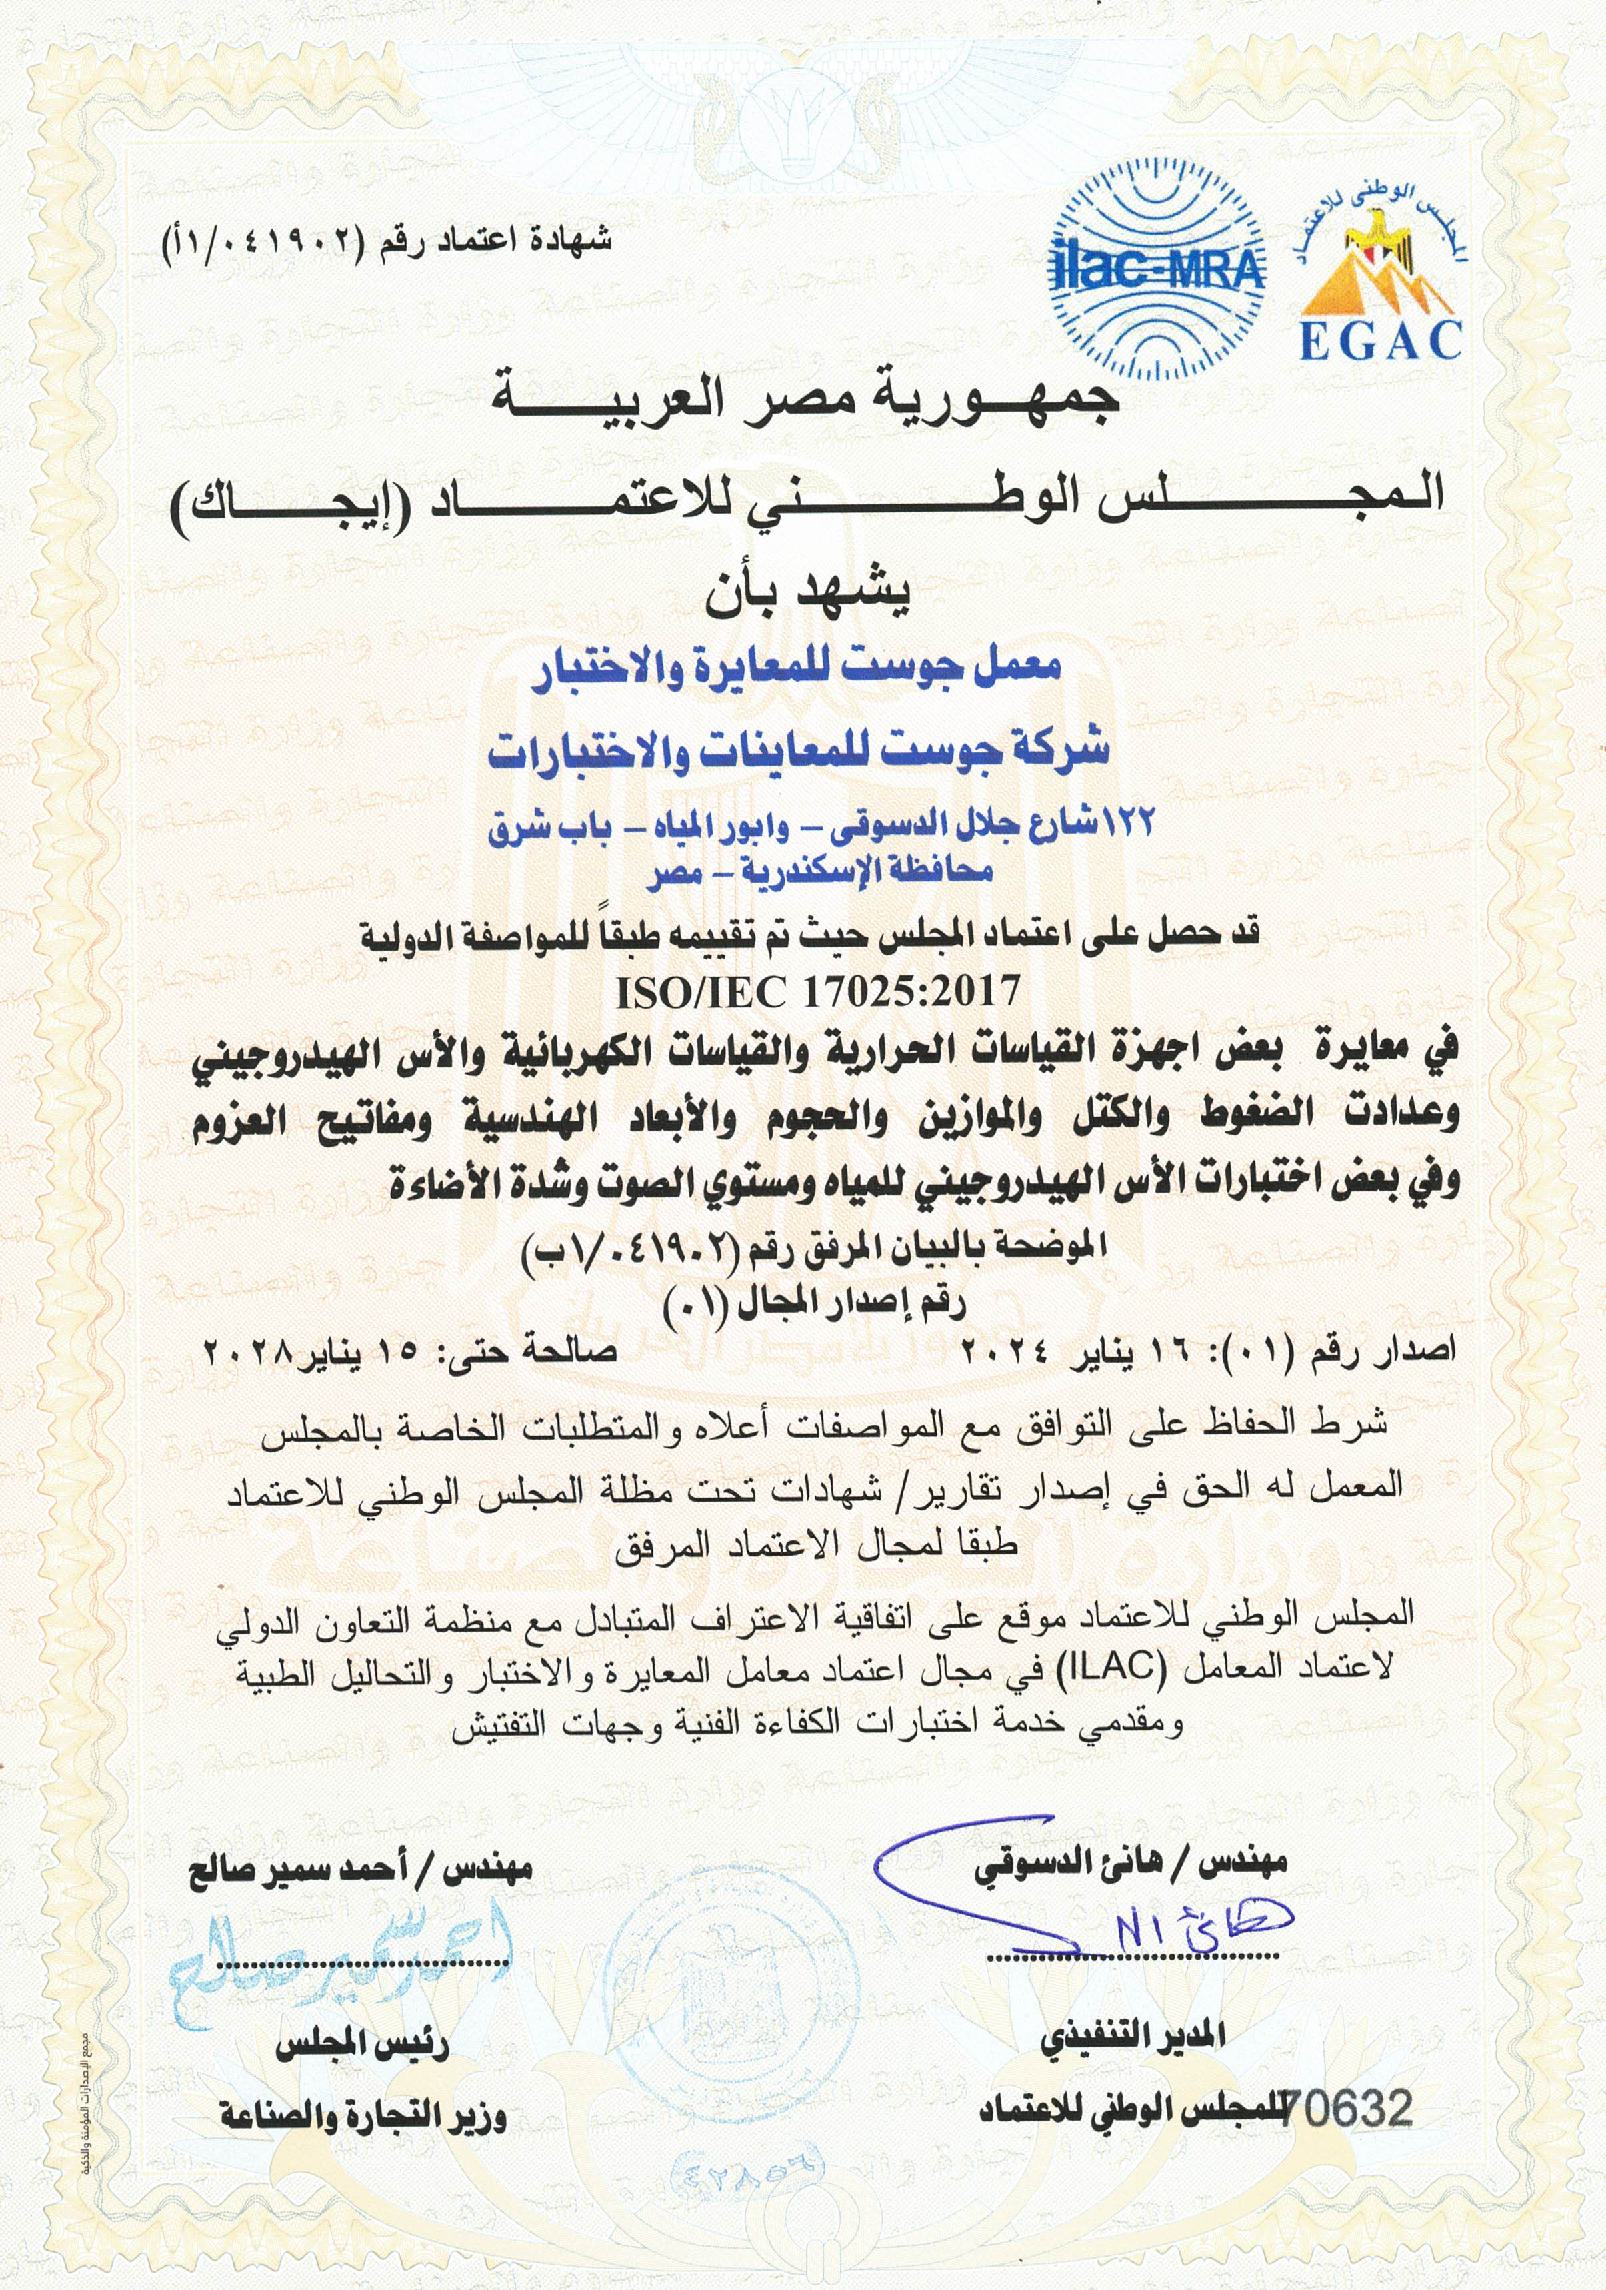 المجلس الوطنى للاعتماد
EGAC
ilac-MRA
شهادة اعتماد رقم (٠٤١٩٠٢/١أ)
جمهورية مصر العربية
المجلس الوطني للاعتماد (إيجاك)
يشهد بأن
معمل جوست للمعايرة والاختبار
شركة جوست للمعاينات والاختبارات
١٢٢شارع جلال الدسوقى – وابور المياه – باب شرق
محافظة الإسكندرية – مصر
قد حصل على اعتماد المجلس حيث تم تقييمه طبقاً للمواصفة الدولية
ISO/IEC 17025:2017
في معايرة بعض اجهزة القياسات الحرارية والقياسات الكهربائية والأس الهيدروجيني
وعدادت الضغوط والكتل والموازين والحجوم والأبعاد الهندسية ومفاتيح العزوم
وفي بعض اختبارات الأس الهيدروجيني للمياه ومستوي الصوت وشدة الأضاءة
الموضحة بالبيان المرفق رقم (٠٤١٩٠٢/١ب)
رقم إصدار المجال (٠١)
اصدار رقم (٠١): ١٦ يناير ٢٠٢٤
صالحة حتى: ١٥ يناير٢٠٢٨
شرط الحفاظ على التوافق مع المواصفات أعلاه والمتطلبات الخاصة بالمجلس
المعمل له الحق في إصدار تقارير/ شهادات تحت مظلة المجلس الوطني للاعتماد
طبقا لمجال الاعتماد المرفق
المجلس الوطني للاعتماد موقع على اتفاقية الاعتراف المتبادل مع منظمة التعاون الدولي
لاعتماد المعامل (ILAC) في مجال اعتماد معامل المعايرة والاختبار والتحاليل الطبية
ومقدمي خدمة اختبارات الكفاءة الفنية وجهات التفتيش
مهندس / هانئ الدسوقي
مهندس / أحمد سمير صالح
احمد سمير صالح
المدير التنفيذي
رئيس المجلس
للمجلس الوطني للاعتماد
70632
وزير التجارة والصناعة
(٤٢٨٥٦)
مجمع الإصدارات المؤمنة والذكية